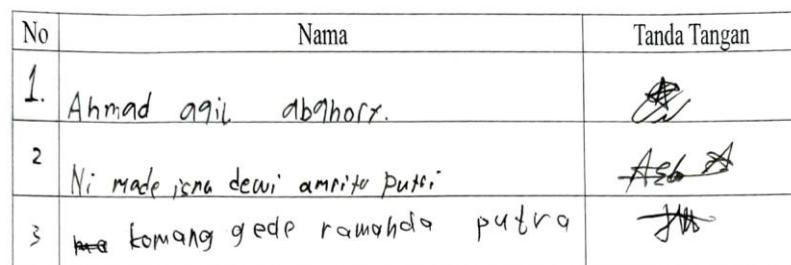 No Nama Tanda Tangan
1. Ahmad aqil abghory.
2 Ni made isna dewi amrita putri
3 komang gede ramahda putra